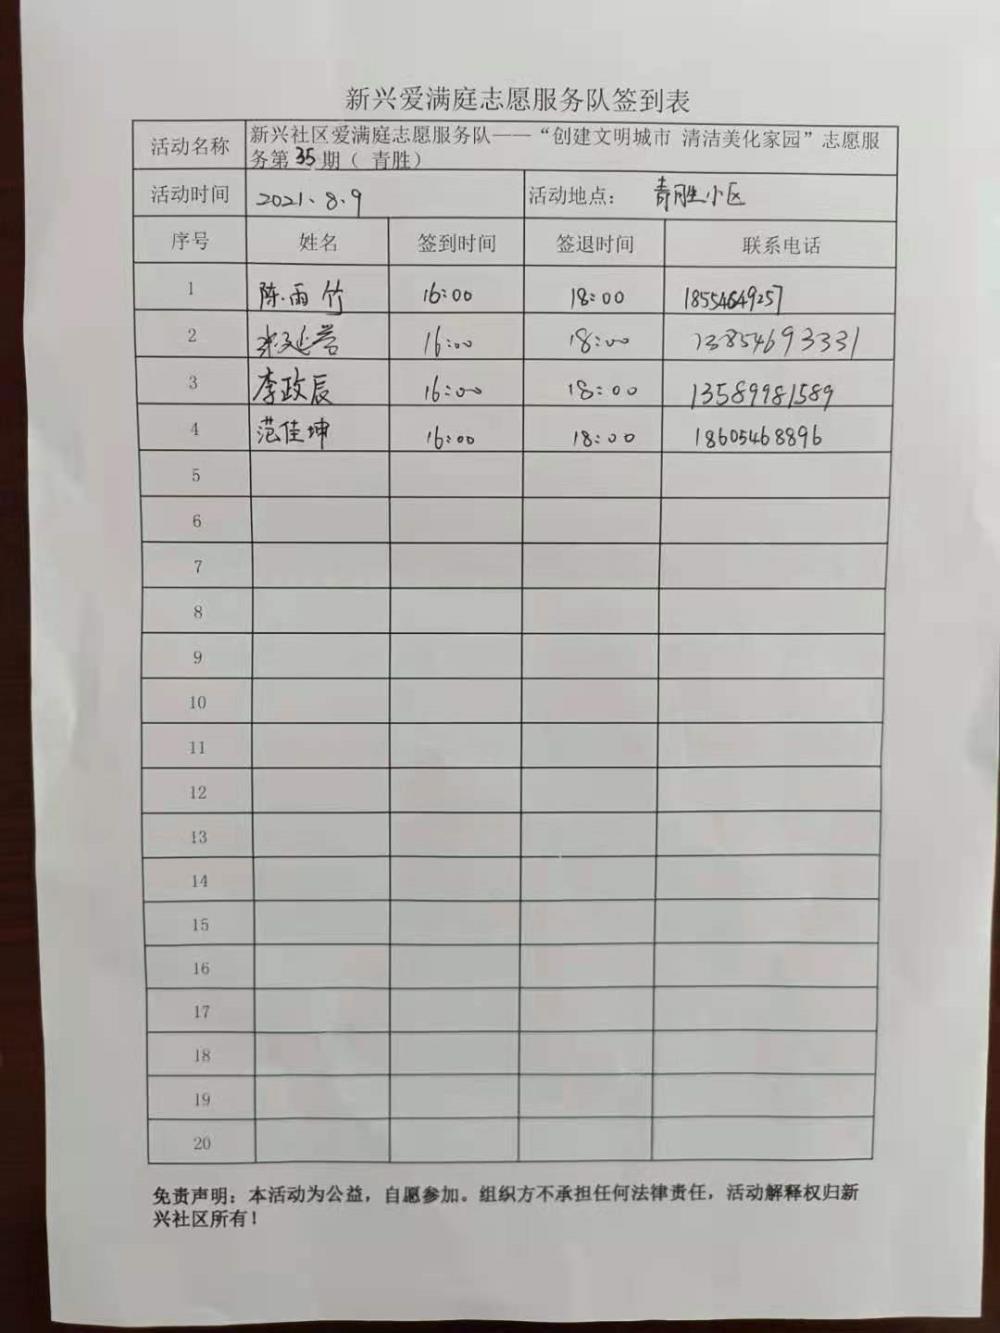 新兴爱满庭志愿服务队签到表
活动名称 新兴社区爱满庭志愿服务队——“创建文明城市 清洁美化家园”志愿服
务第35期（ 青胜）
活动时间 2021、8、9 活动地点： 青胜小区
序号 姓名 签到时间 签退时间 联系电话
1 陈雨竹 16:00 18:00 18554649257
2 16:00 18:00 13854693331
3 李政辰 16:00 18:00 13589981589
4 范佳坤 16:00 18:00 18605468896
5
6
7
8
9
10
11
12
13
14
15
16
17
18
19
20
免责声明：本活动为公益，自愿参加。组织方不承担任何法律责任，活动解释权归新
兴社区所有！